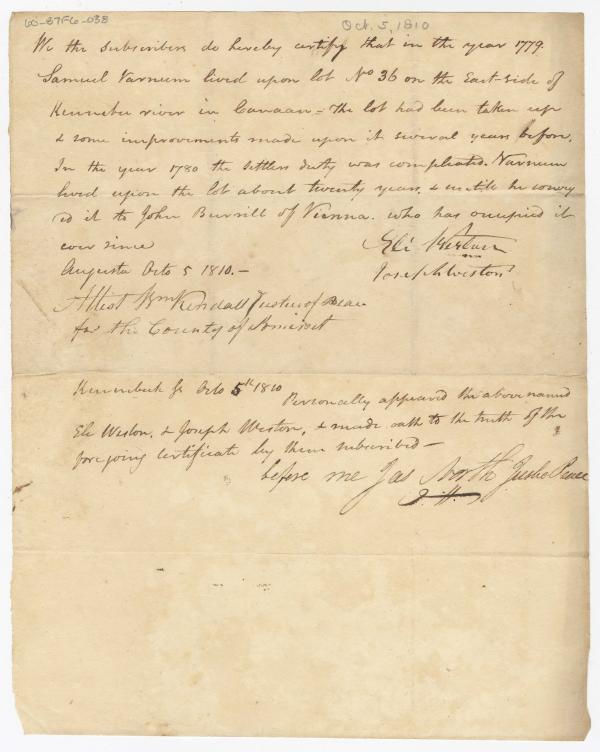 60-87F6-038
Oct. 5, 1810
We the subscribers do hereby certify that in the year 1779.
Samuel Varnum lived upon lot No 36 on the East-side of
Kennebec river in Canaan = The lot had been taken up
& some improvements made upon it several years before.
In the year 1780 the settlers duty was compleated. Varnum
lived upon the lot about twenty years, & untill he convey
ed it to John Burrill of Vienna. who has occupied it
ever since
Eli Weston
Augusta Octo 5 1810.-
Joseph Weston
Attest Wm Kendall Justice of Peace
for the County of Somerset
Kennebeck Ss Octo 5th 1810
Personally appeared the above named
Eli Weston, & Joseph Weston, & made oath to the truth of the
foregoing certificate by them subscribed -
before me Jas North Justice Peace